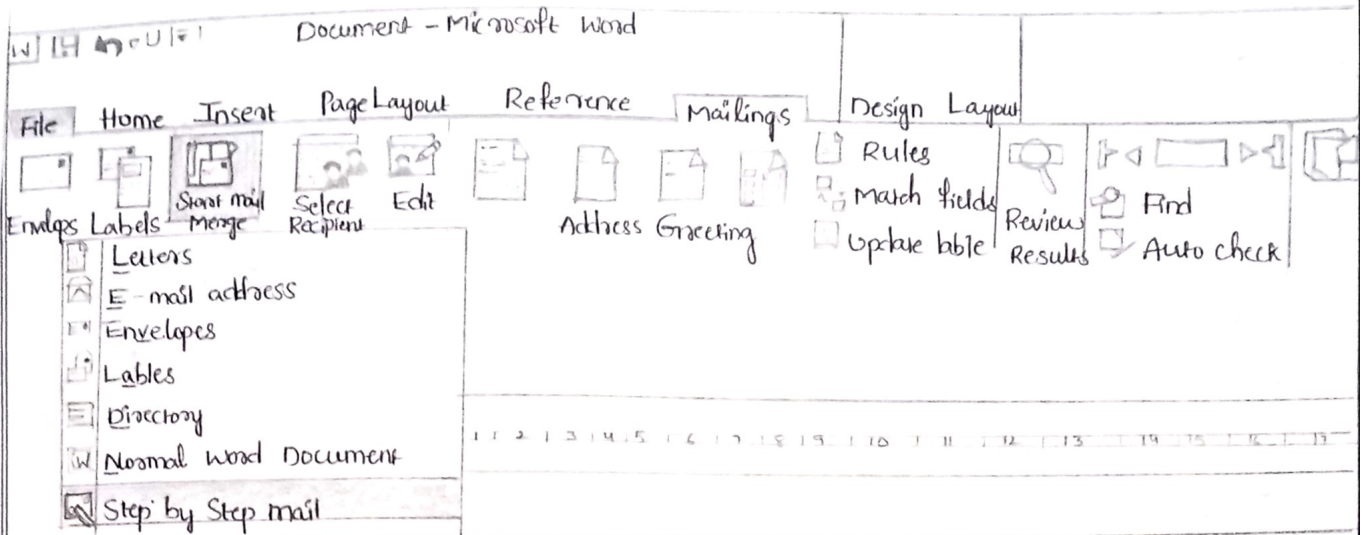 Document - Microsoft Word
File Home Insert Page Layout Reference Mailings Design Layout
Envlops Labels Start mail Merge Select Recipient Edit Address Greeting Rules
Match fields
Update lable
Review Results
Find
Auto check
Letters
E-mail address
Envelopes
Lables
Directory
Normal Word Document
Step by Step mail
1 1 2 1 3 1 4 . 5 1 6 1 7 1 8 1 9 1 10 1 11 1 12 1 13 1 14 15 1 16 1 17